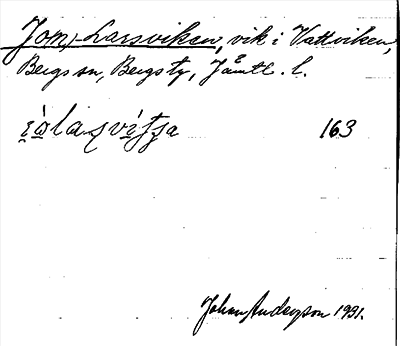 Jom-Larsviken, vik i Vattviken,
Bergs sn, Bergs tg, Jämtl. l.
163
Johan Anderson 1931.